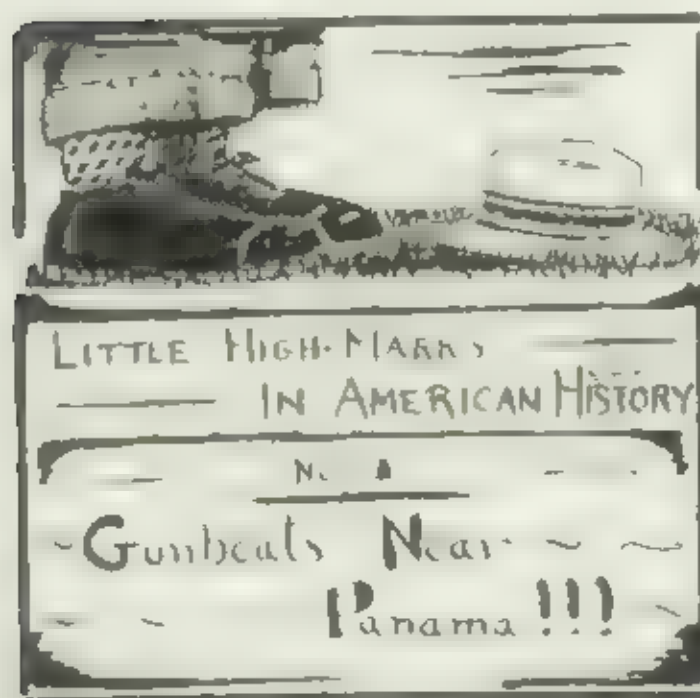 LITTLE HIGH-MARKS
IN AMERICAN HISTORY
No. 1
Gunboats Near
Panama!!!